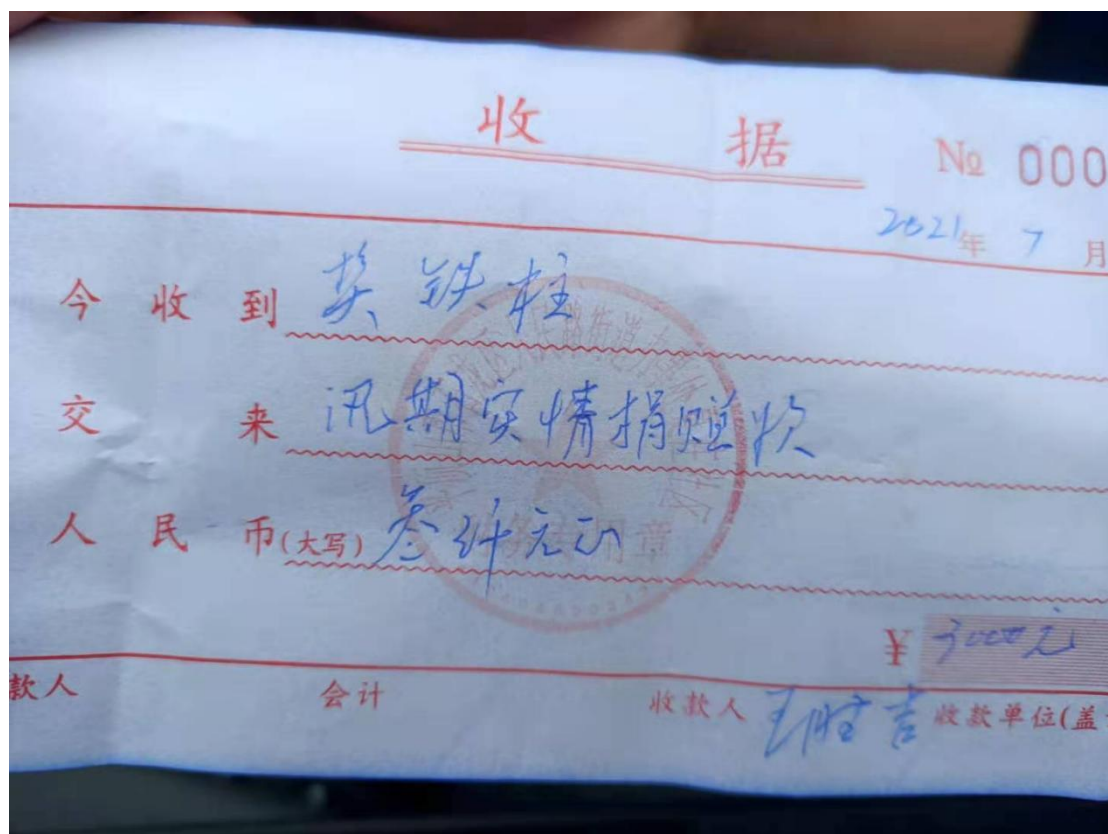 收 据
№ 000
2021年 7 月
今 收 到 樊铁柱
交 来 汛期实情捐赠款
人 民 币(大写) 叁仟元正
¥ 3000元
款人 会计 收款人 王胜吉 收款单位(盖